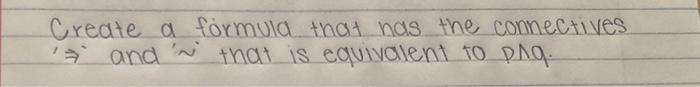 Create a formula that has the connectives
'→' and '~' that is equivalent to p∧q.